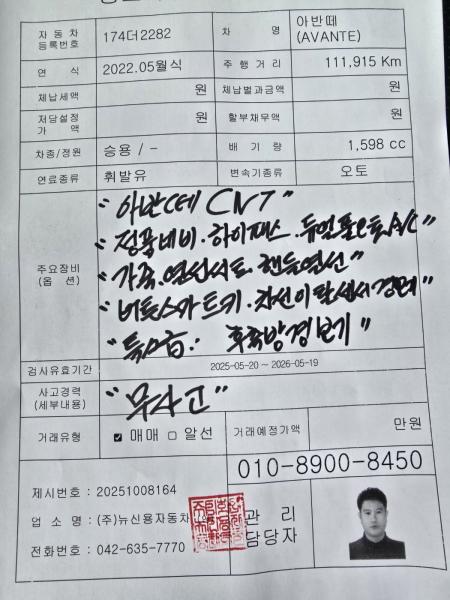 자 동 차 등록번호 174더2282 차 명 아반떼 (AVANTE)
연 식 2022.05월식 주 행 거 리 111,915 Km
체납세액 원 체납벌과금액 원
저당설정 가 액 원 할부채무액 원
차종/정원 승용 / - 배 기 량 1,598 cc
연료종류 휘발유 변속기종류 오토
주요장비 (옵 션)
"아반떼 CN7"
"정품네비·하이패스·듀얼풀오토A/C
"가죽·열선시트·핸들열선"
"버튼스마트키·차선이탈센서경보"
"특A급· 후측방경보기"
검사유효기간 2025-05-20 ~ 2026-05-19
사고경력 (세부내용) "무사고"
거래유형 매매 알선 거래예정가액 만원
010-8900-8450
제시번호 : 20251008164
업 소 명 : (주)뉴신용자동차 관 리
전화번호 : 042-635-7770 담당자